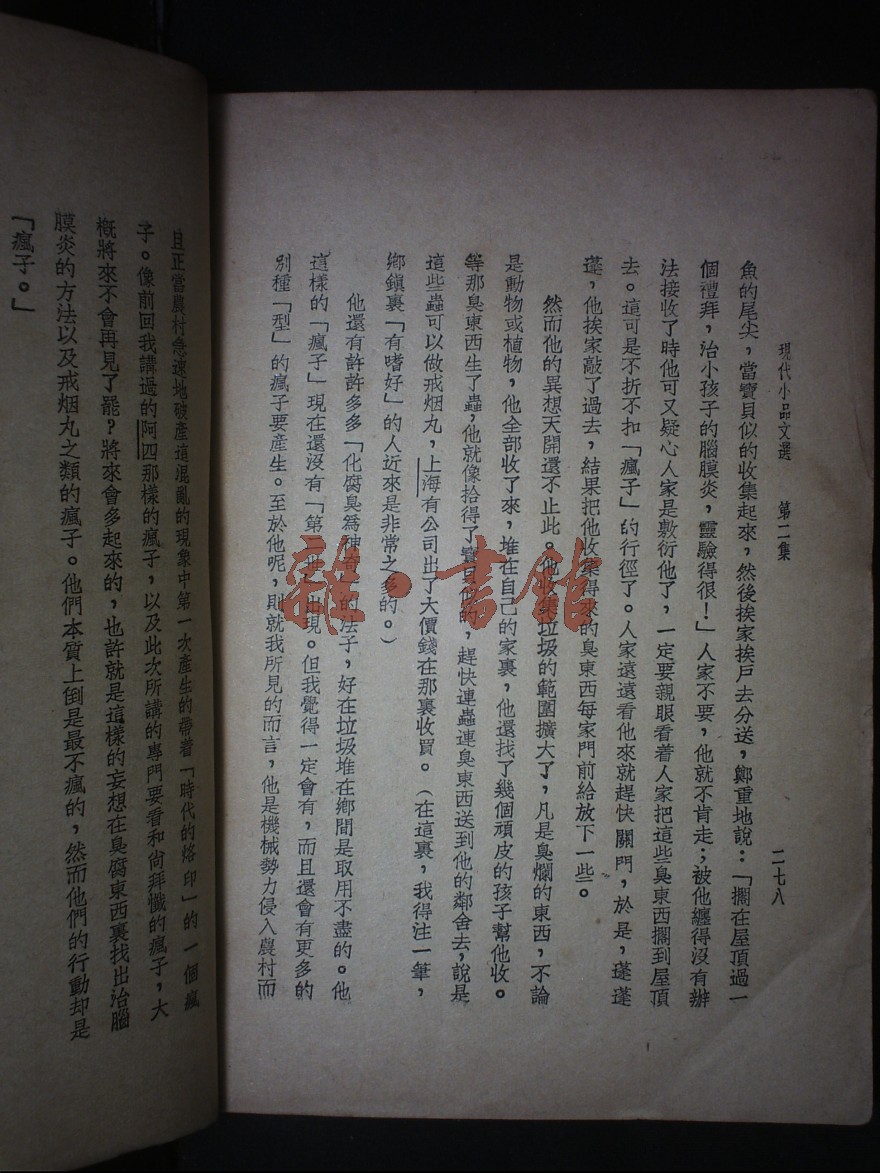 現代小品文選　第二集　二七八
魚的尾尖，當寶貝似的收集起來，然後挨家挨戶去分送，鄭重地說：「擱在屋頂過一
個禮拜，治小孩子的腦膜炎，靈驗得很！」人家不要，他就不肯走；被他纏得沒有辦
法接收了時他可又疑心人家是敷衍他了，一定要親眼看着人家把這些臭東西擱到屋頂
去。這可是不折不扣「瘋子」的行徑了。人家遠遠看他來就趕快關門，於是，蓬蓬
蓬，他挨家敲了過去，結果把他收集得來的臭東西每家門前給放下一些。
然而他的異想天開還不止此。他收集垃圾的範圍擴大了，凡是臭爛的東西，不論
是動物或植物，他全部收了來，堆在自己的家裏，他還找了幾個頑皮的孩子幫他收。
等那臭東西生了蟲，他就像拾得了寶貝似的，趕快連蟲連臭東西送到他的鄰舍去，說是
這些蟲可以做戒烟丸，上海有公司出了大價錢在那裏收買。（在這裏，我得注一筆，
鄉鎮裏「有嗜好」的人近來是非常之多的。）
他還有許許多多「化腐臭爲神奇」的法子，好在垃圾堆在鄉間是取用不盡的。他
這樣的「瘋子」現在還沒有「第二他」出現。但我覺得一定會有，而且還會有更多的
別種「型」的瘋子要產生。至於他呢，則就我所見的而言，他是機械勢力侵入農村而
且正當農村急速地破產這混亂的現象中第一次產生的帶着「時代的烙印」的一個瘋
子。像前回我講過的阿四那樣的瘋子，以及此次所講的專門要看和尙拜懺的瘋子，大
槪將來不會再見了罷？將來會多起來的，也許就是這樣的妄想在臭腐東西裏找出治腦
膜炎的方法以及戒烟丸之類的瘋子。他們本質上倒是最不瘋的，然而他們的行動却是
「瘋子。」
雜·書館